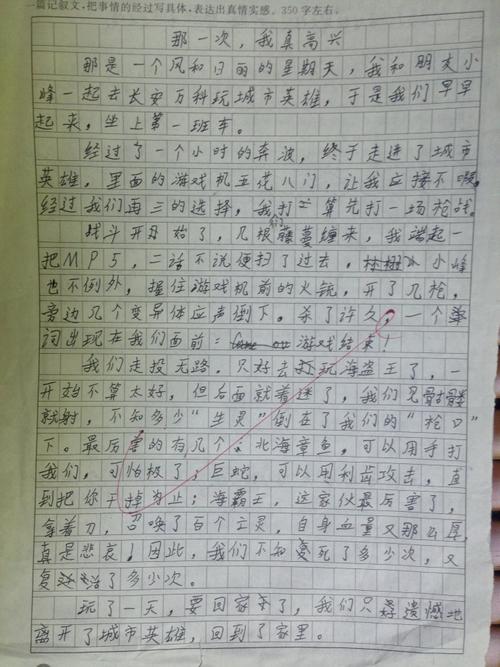 一篇记叙文，把事情的经过写具体，表达出真情实感。350字左右。
那一次，我真高兴
那是一个风和日丽的星期天，我和朋友小
峰一起去长安万科玩城市英雄，于是我们早早
起来，坐上第一班车。
经过了一个小时的奔波，终于走进了城市
英雄，里面的游戏机五花八门，让我应接不暇。
经过我们再三的选择，我们打算先打一场枪战。
战斗开始了，几根藤蔓缠来，我端起一
把MP5，二话不说便扫了过去，小峰
也不例外，握住游戏机前的火铳，开了几枪，
旁边几个变异体应声倒下。杀了许久，一个单
词出现在我们面前：游戏结束！
我们走投无路，只好去玩海盗王了，一
开始不算太好，但后面就着迷了，我们见骷髅
就射，不知多少“生灵”倒在了我们的“枪口”
下。最厉害的有几个：北海章鱼，可以用手打
我们，可怕极了；巨蛇，可以用利齿攻击，直
到把你干掉为止；海霸王，这家伙最厉害了，
拿着刀，召唤了百个亡灵，自身血量又那么厚，
真是悲哀！因此，我们不知死了多少次，又
复活了多少次。
玩了一天，要回家了，我们只好遗憾地
离开了城市英雄，回到了家里。